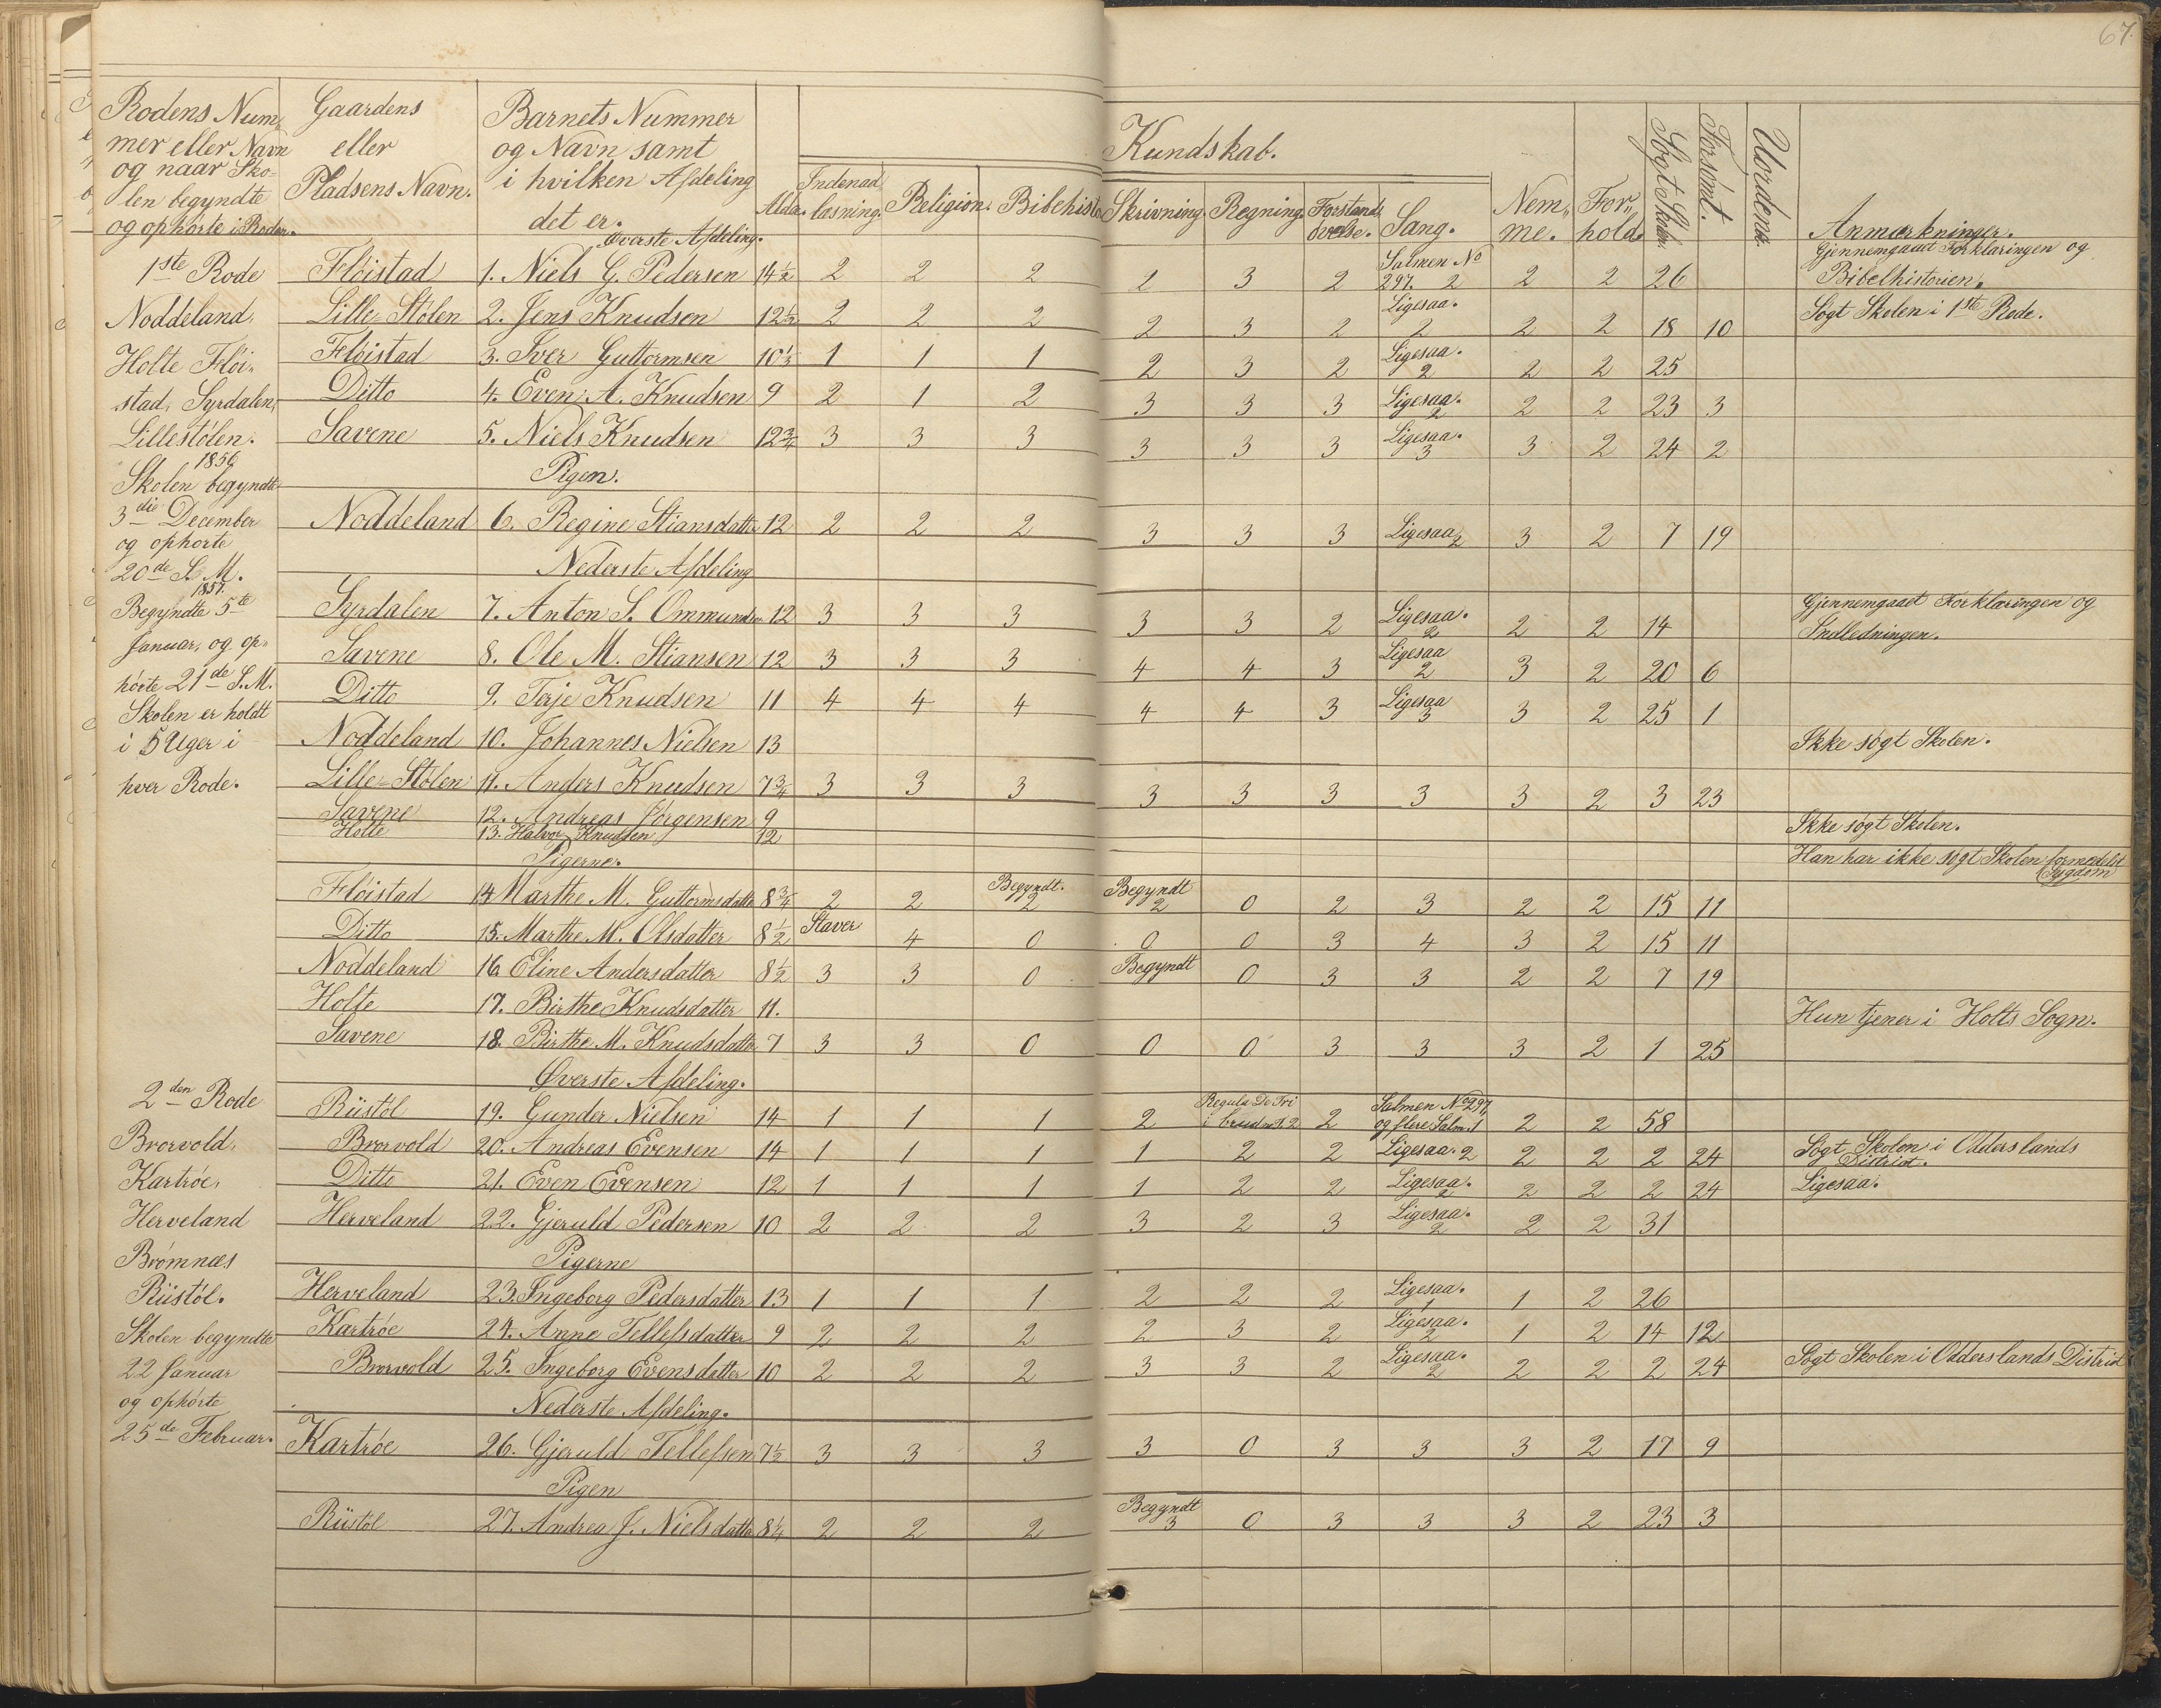 67.
Rodens Num-
mer eller Navn
og naar Sko-
len begyndte
og ophørte i Roden.
Gaardens
eller
Pladsens Navn.
Barnets Nummer
og Navn samt
i hvilken Afdeling
det er.
Alder.
Kundskab.
Indenad
læsning. Religion. Bibelhist. Skrivning. Regning. Forstands
øvelse. Sang. Nem-
me. For-
hold. Søgt Skolen. Forsømt. Uordens. Anmærkninger.
Øverste Afdeling.
1ste Rode Fløistad 1. Niels G. Pedersen 14½ 2 2 2 2 3 2 Salmen No 297. 2 2 2 26 Gjennemgaaet Forklaringen og Bibelhistorien.
Noddeland, Lille-Stølen 2. Jens Knudsen 12½ 2 2 2 2 3 2 Ligesaa. 2 2 2 18 10 Søgt Skolen i 1ste Rode.
Holte Fløi- Fløistad 3. Iver Guttormsen 10⅓ 1 1 1 2 3 2 Ligesaa. 2 2 2 25
stad, Syrdalen, Ditto 4. Even A. Knudsen 9 2 1 2 3 3 3 Ligesaa. 2 2 2 23 3
Lillestølen. Savene 5. Niels Knudsen 12¾ 3 3 3 3 3 3 Ligesaa. 3 3 2 24 2
1856
Skolen begyndte Pigen.
3die December Noddeland 6. Regine Stiansdatter 12 2 2 2 3 3 3 Ligesaa 2 3 2 7 19
og ophørte
20de S. M. Nederste Afdeling
1857.
Begyndte 5te Syrdalen 7. Anton S. Ommundsen 12 3 3 3 3 3 2 Ligesaa. 2 2 2 14 Gjennemgaaet Forklaringen og Indledningen.
Januar, og op- Savene 8. Ole M. Stiansen 12 3 3 3 4 4 3 Ligesaa 2 3 2 20 6
hørte 21de S. M. Ditto 9. Terje Knudsen 11 4 4 4 4 4 3 Ligesaa 3 3 2 25 1
Skolen er holdt
i 5 Uger i Noddeland 10. Johannes Nielsen 13 Ikke søgt Skolen.
hver Rode. Lille-Stølen 11. Anders Knudsen 7¾ 3 3 3 3 3 3 3 3 2 3 23
Savene 12. Andreas Jørgensen 9 Ikke søgt Skolen.
Holte 13. Halvor Knudsen 12 Han har ikke søgt Skolen formedelst Sygdom
Pigerne.
Fløistad 14 Marthe M. Guttormsdatter 8¾ 2 2 Begyndt. 2 Begyndt 2 0 2 3 2 2 15 11
Ditto 15. Marthe M. Olsdatter 8½ Staver 4 0 0 0 3 4 3 2 15 11
Noddeland 16 Eline Andersdatter 8½ 3 3 0 Begyndt 0 3 3 2 2 7 19
Holte 17. Birthe Knudsdatter 11. Hun tjener i Holts Sogn.
Savene 18. Birthe M. Knudsdatter 7 3 3 0 0 0 3 3 3 2 1 25
Øverste Afdeling.
2den Rode Riistøl 19. Gunder Nielsen 14 1 1 1 2 Regula De Tri i brudne T. 2 2 Salmen No 297, og flere Salm. 1 2 2 58
Brorvold, Brorvold 20. Andreas Evensen 14 1 1 1 1 2 2 Ligesaa. 2 2 2 2 24 Søgt Skolen i Odderslands District.
Kartrøe, Ditto 21. Even Evensen 12 1 1 1 1 2 2 Ligesaa. 2 2 2 2 24 Ligesaa.
Herveland Herveland 22. Gjeruld Pedersen 10 2 2 2 3 2 3 Ligesaa. 2 2 2 31
Brømnæs Pigerne
Riistøl. Herveland 23. Ingeborg Pedersdatter 13 1 1 1 2 2 2 Ligesaa. 1 1 2 26
Skolen begyndte Kartrøe 24. Anne Tellefsdatter 9 2 2 2 2 3 2 Ligesaa. 2 1 2 14 12
22 Januar Brorvold 25. Ingeborg Evensdatter 10 2 2 2 3 3 2 Ligesaa. 2 2 2 2 24 Søgt Skolen i Odderslands District
og ophørte Nederste Afdeling.
25de Februar. Kartrøe 26. Gjeruld Tellefsen 7½ 3 3 3 3 0 3 3 3 2 17 9
Pigen
Riistøl 27. Andrea J. Nielsdatter 8¼ 2 2 2 Begyndt 3 0 3 3 3 2 23 3